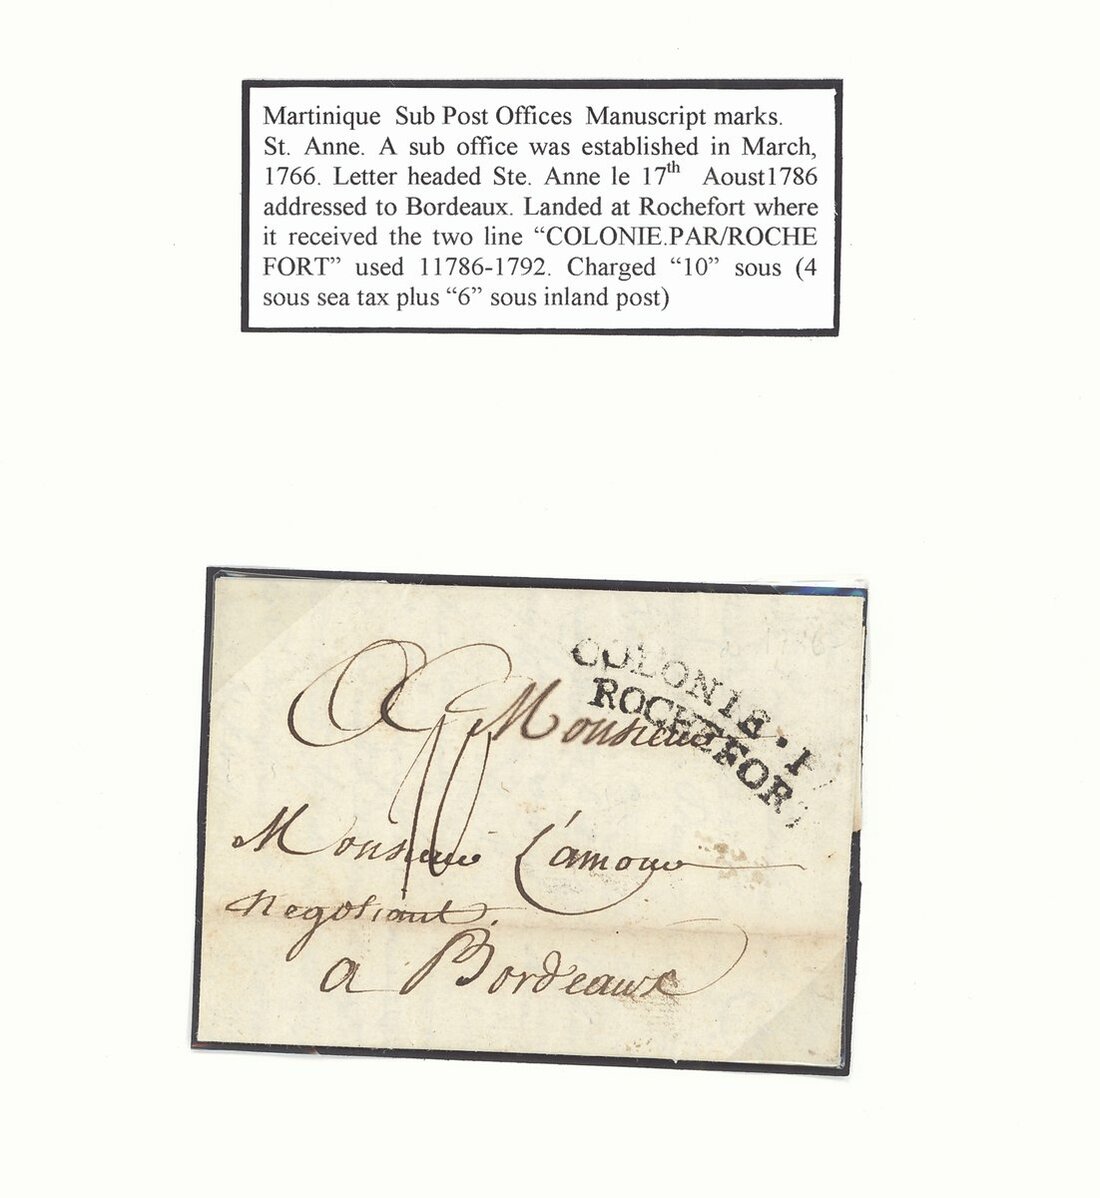 Martinique Sub Post Offices Manuscript marks.
St. Anne. A sub office was established in March,
1766. Letter headed Ste. Anne le 17th Aoust1786
addressed to Bordeaux. Landed at Rochefort where
it received the two line “COLONIE.PAR/ROCHE
FORT” used 11786-1792. Charged “10” sous (4
sous sea tax plus “6” sous inland post)
COLONIE.P
ROCHEFOR
A Monsieur
10
Monsieur L'amour
Negotiant.
a Bordeaux